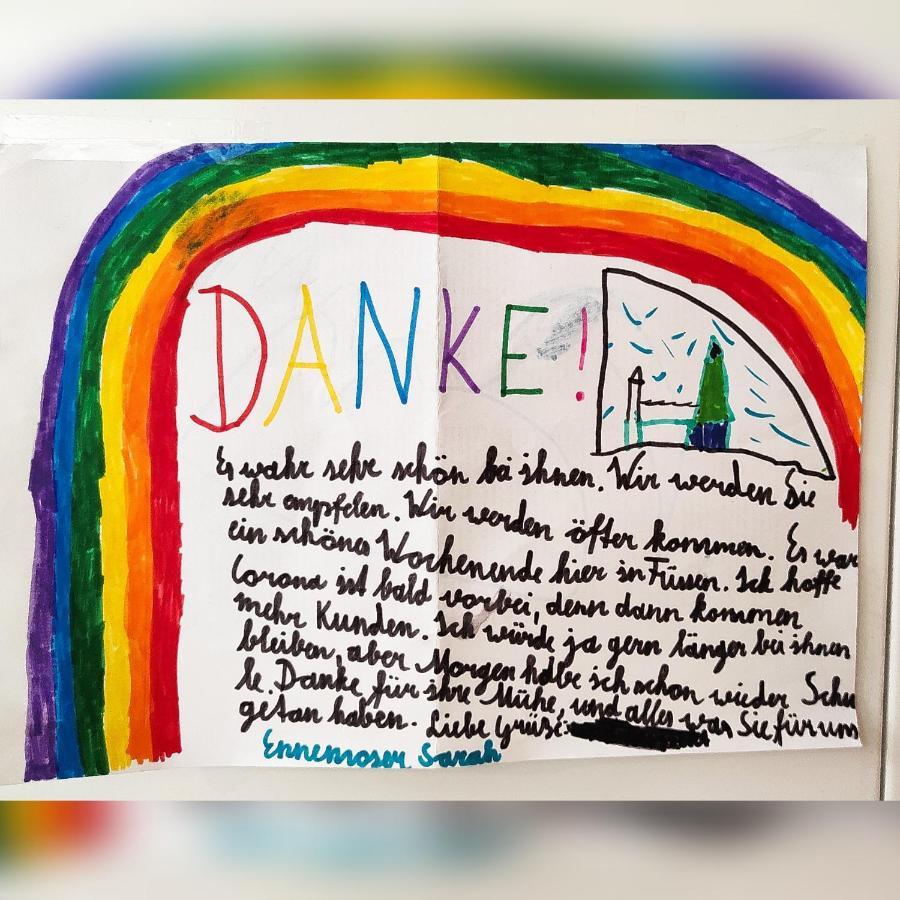 DANKE!
Es wahr sehr schön bei ihnen. Wir werden Sie
sehr empfelen. Wir werden öfter kommen. Es war
ein schönes Wochenende hier in Füssen. Ich hoffe
Corona ist bald vorbei, denn dann kommen
mehr Kunden. Ich würde ja gern länger bei ihnen
bleiben, aber Morgen habe ich schon wieder Schu
le. Danke für ihre Mühe, und alles was Sie für uns
getan haben. Liebe Grüße:
Ennemoser Sarah